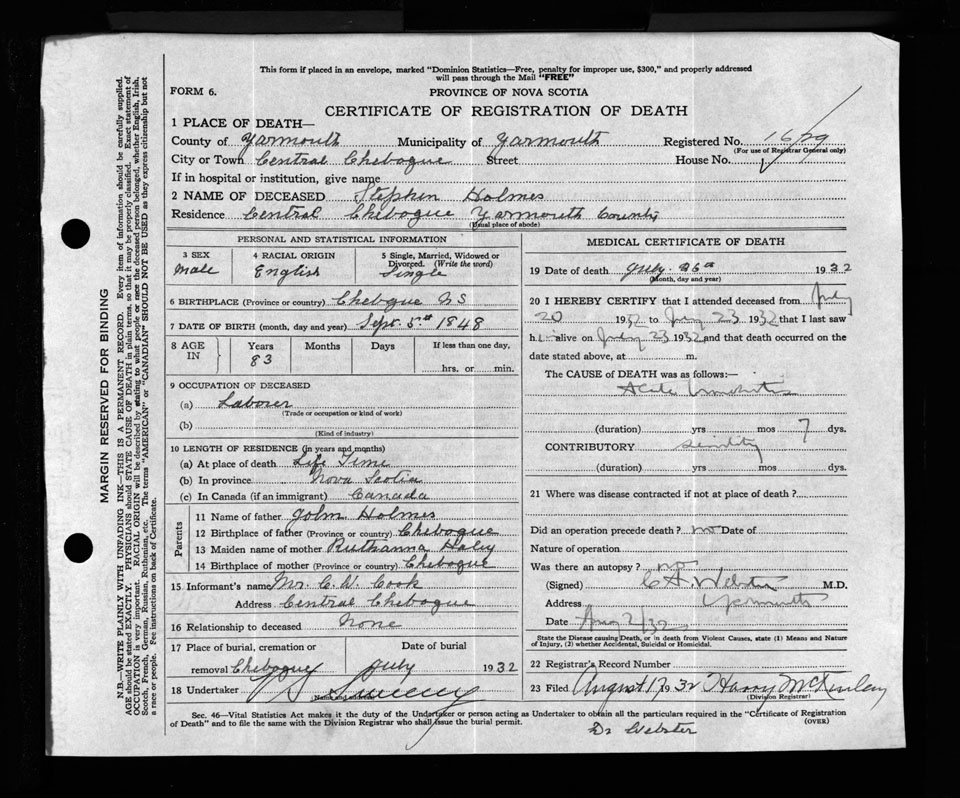 This form if placed in an envelope, marked "Dominion Statistics—Free, penalty for improper use, $300," and properly addressed
will pass through the Mail "FREE"
FORM 6.
PROVINCE OF NOVA SCOTIA
CERTIFICATE OF REGISTRATION OF DEATH
1 PLACE OF DEATH—
County of Yarmouth Municipality of Yarmouth Registered No. 16/29
(For use of Registrar General only)
City or Town Central Chebogue Street House No.
If in hospital or institution, give name
2 NAME OF DECEASED Stephen Holmes
Residence Central Chebogue Yarmouth County
(Usual place of abode)
PERSONAL AND STATISTICAL INFORMATION
3 SEX
Male
4 RACIAL ORIGIN
English
5 Single, Married, Widowed or
Divorced. (Write the word)
Single
6 BIRTHPLACE (Province or country) Chebogue NS
7 DATE OF BIRTH (month, day and year) Sept. 5th 1848
8 AGE IN
Years Months Days If less than one day,
83
hrs. or min.
9 OCCUPATION OF DECEASED
(a) Laborer
(Trade or occupation or kind of work)
(b)
(Kind of industry)
10 LENGTH OF RESIDENCE (in years and months)
(a) At place of death Life Time
(b) In province Nova Scotia
(c) In Canada (if an immigrant) Canada
Parents
11 Name of father John Holmes
12 Birthplace of father (Province or country) Chebogue
13 Maiden name of mother Ruthanna Haley
14 Birthplace of mother (Province or country) Chebogue
15 Informant's name Mr. C. W. Cook
Address Central Chebogue
16 Relationship to deceased None
17 Place of burial, cremation or Date of burial
removal Chebogue July 1932
18 Undertaker Sweeny
(Name and address)
MEDICAL CERTIFICATE OF DEATH
19 Date of death July 26th 1932
(Month, day and year)
20 I HEREBY CERTIFY that I attended deceased from July
20 1932 to July 23 1932 that I last saw
h alive on July 23 1932 and that death occurred on the
date stated above, at m.
The CAUSE of DEATH was as follows:—
Acute Bronchitis
(duration) yrs mos 7 dys.
CONTRIBUTORY senility
(duration) yrs mos dys.
21 Where was disease contracted if not at place of death?
Did an operation precede death? no Date of
Nature of operation
Was there an autopsy? no
(Signed) C A Webster M.D.
Address Yarmouth
Date Aug 2/32
State the Disease causing Death, or in death from Violent Causes, state (1) Means and Nature
of Injury, (2) whether Accidental, Suicidal or Homicidal.
22 Registrar's Record Number
23 Filed August 17 1932 Harry McKinlay
(Division Registrar)
Sec. 46—Vital Statistics Act makes it the duty of the Undertaker or person acting as Undertaker to obtain all the particulars required in the "Certificate of Registration
of Death" and to file the same with the Division Registrar who shall issue the burial permit.
(OVER)
Dr Webster
MARGIN RESERVED FOR BINDING
N.B.—WRITE PLAINLY WITH UNFADING INK—THIS IS A PERMANENT RECORD. Every item of information should be carefully supplied.
AGE should be stated EXACTLY. PHYSICIANS should STATE CAUSE OF DEATH in plain terms, so that it may be properly classified. Exact statement of
OCCUPATION is very important. RACIAL ORIGIN will be described by stating to what people or race the deceased person belonged, whether English, Irish,
Scotch, French, German, Russian, Ruthenian, etc. The terms "AMERICAN" or "CANADIAN" SHOULD NOT BE USED as they express citizenship but not
a race or people. See instructions on back of Certificate.